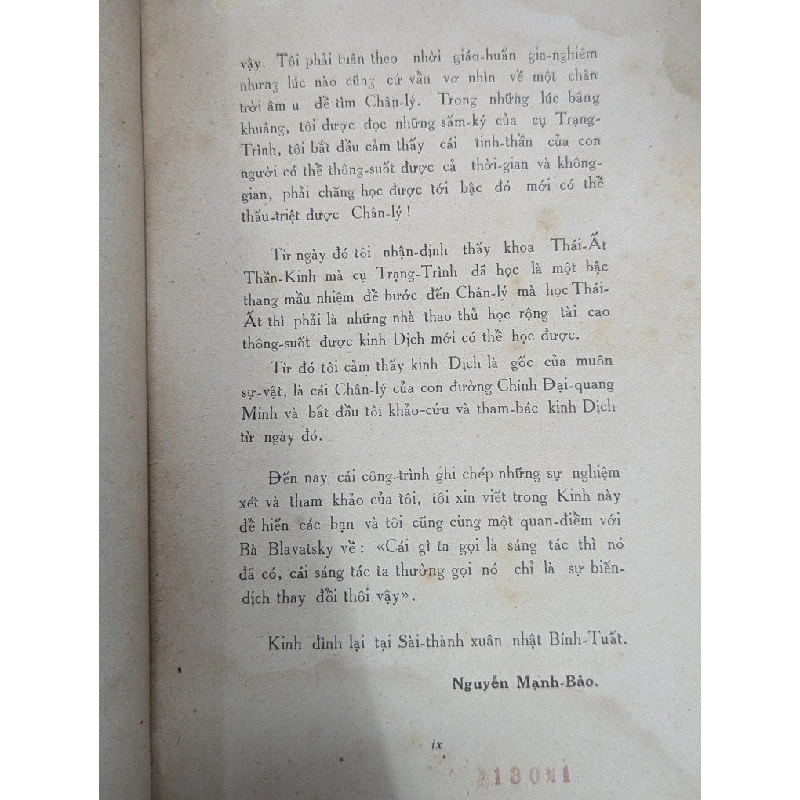 vậy. Tôi phải tuân theo nhời giáo-huấn gia-nghiêm
nhưng lúc nào cũng cứ vẩn vơ nhìn về một chân
trời âm u để tìm Chân-lý. Trong những lúc bâng
khuâng, tôi được đọc những sấm-ký của cụ Trạng-
Trình, tôi bắt đầu cảm thấy cái tinh-thần của con
người có thể thông-suốt được cả thời-gian và không-
gian, phải chăng học được tới bậc đó mới có thể
thấu-triệt được Chân-lý !
Từ ngày đó tôi nhận-định thấy khoa Thái-Ất
Thần-Kinh mà cụ Trạng-Trình đã học là một bậc
thang mầu nhiệm để bước đến Chân-lý mà học Thái-
Ất thì phải là những nhà thao thủ học rộng tài cao
thông-suốt được kinh Dịch mới có thể học được.
Từ đó tôi cảm thấy kinh Dịch là gốc của muôn
sự-vật, là cái Chân-lý của con đường Chính Đại-quang
Minh và bắt đầu tôi khảo-cứu và tham-bác kinh Dịch
từ ngày đó.
Đến nay cái công-trình ghi chép những sự nghiệm
xét và tham khảo của tôi, tôi xin viết trong Kinh này
để hiến các bạn và tôi cũng cùng một quan-điểm với
Bà Blavatsky về : «Cái gì ta gọi là sáng tác thì nó
đã có, cái sáng tác ta thường gọi nó chỉ là sự biến-
dịch thay đổi thôi vậy».
Kinh đình lại tại Sài-thành xuân nhật Bính-Tuất.
Nguyễn Mạnh-Bảo.
ix